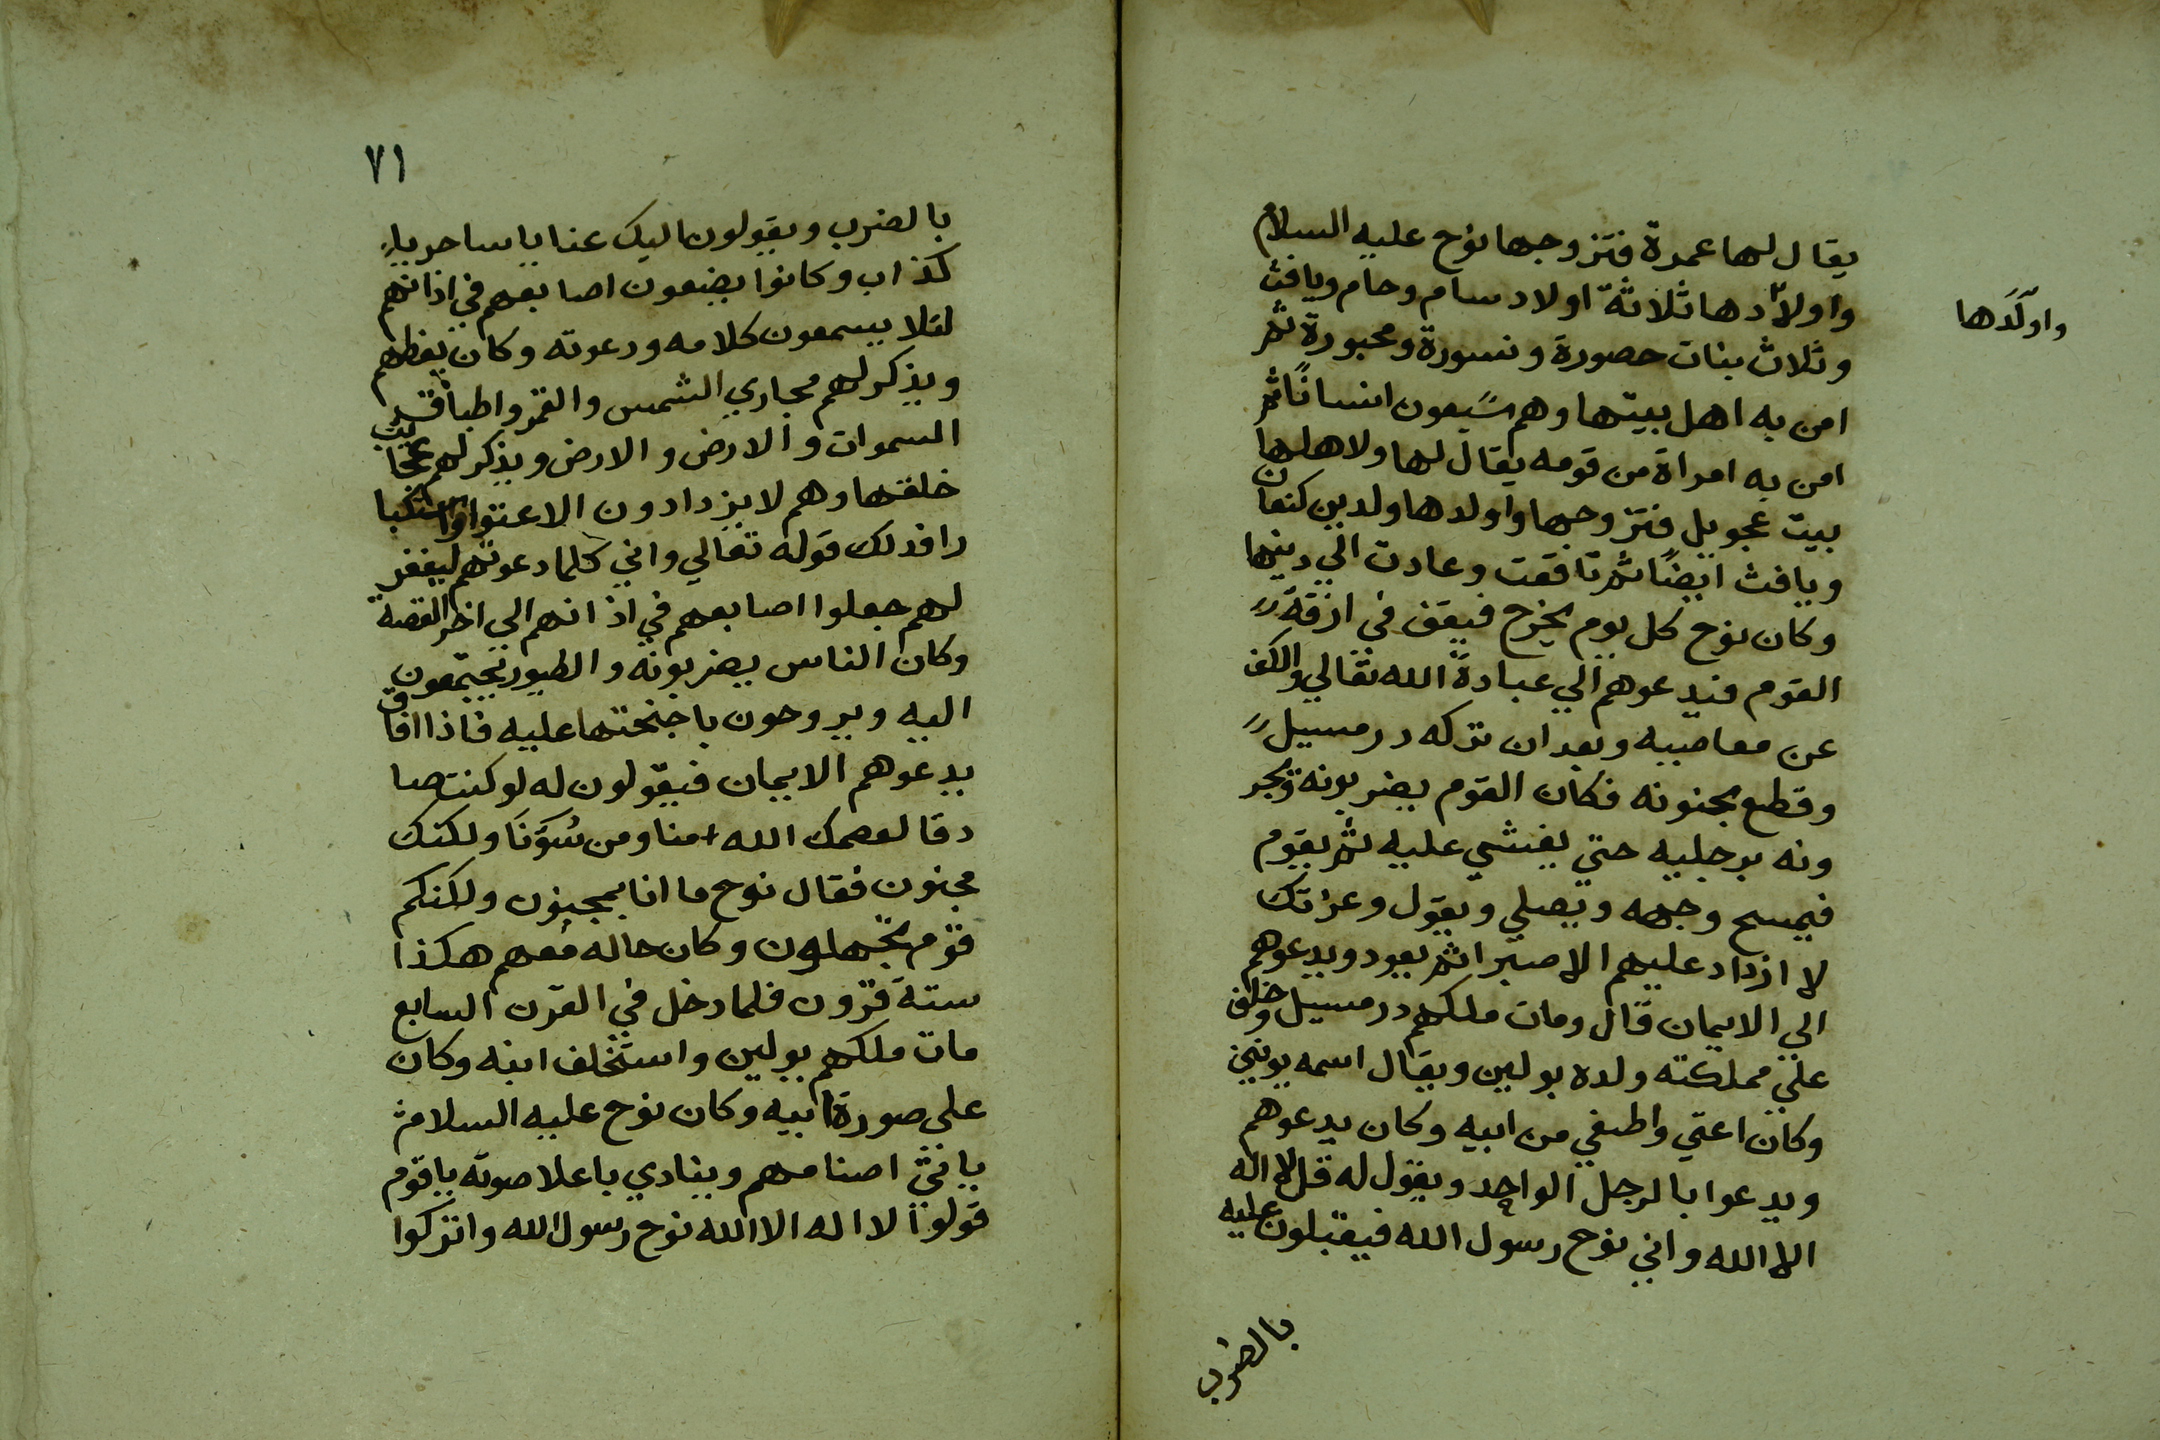 يقال لها عمدة فتزوجها نوح عليه السلام
واولادها ثلاثة اولاد سام وحام ويافث
واولَدَها
وثلاث بنات حصورة ونسورة ومحبورة ثم
امن به اهل بيتها وهم سبعون انسانًا ثم
امن به امراة من قومه يقال لها ولاهلها
بيت عجويل فتزوجها واولدها ولدين كنعان
ويافث ايضًا ثم نافقت وعادت الي دينها
وكان نوح كل يوم يخرج فيقف في ازقة
القوم فيدعوهم الي عبادة الله تعالي والكف
عن معاصيه وبعد ان تركه درمسيل
وقطع بجنونه فكان القوم يضربونه ويجر
ونه برجليه حتي يغشي عليه ثم يقوم
فيمسح وجهه ويصلي ويقول وعزاتك
لا ازداد عليهم الا صبرا ثم يعود ويدعوهم
الي الايمان قال ومات ملكهم درمسيل وخلف
علي مملكته ولده بولين ويقال اسمه يونين
وكان اعتي واطغي من ابيه وكان يدعوهم
ويدعوا بالرجل الواحد ويقول له قل لا اله
الا الله واني نوح رسول الله فيقبلون عليه
بالضرب
٧١
بالضرب ويقولون اليك عنا يا ساحر يا
كذاب وكانوا يضعون اصابعهم في اذانهم
لئلا يسمعون كلامه ودعوته وكان يعظهم
ويذكر لهم مجاري الشمس والقمر واطباق
السموات والارض والارض ويذكر لهم عجائب
خلقها وهم لا يزدادون الا عتوا واستكبا
را فذلك قوله تعالي واني كلما دعوتهم ليغفر
لهم جعلوا اصابعهم في اذانهم الي اخر القصة
وكان الناس يضربونه والطيور يجتمعون
اليه ويروحون باجنحتها عليه فاذا افاق
يدعوهم الايمان فيقولون له لو كنت صا
دقا لعصمك الله منا ومن سُوَّنَا ولكنك
مجنون فقال نوح ما انا بمجنون ولكنكم
قوم تجهلون وكان حاله معهم هكذا
ستة قرون فلما دخل في القرن السابع
مات ملكهم بولين واستخلف ابنه وكان
علي صورة ابيه وكان نوح عليه السلام
ياتي اصنامهم وينادي باعلا صوته يا قوم
قولوا لا اله الا الله نوح رسول الله واتركوا